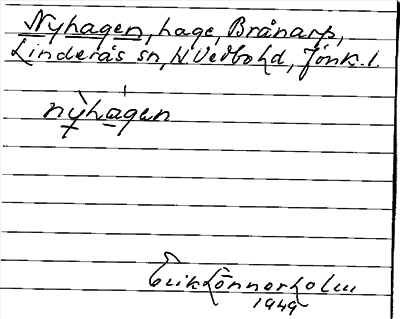 Nyhagen, hage, Brånarp,
Linderås sn, N. Vedbohd, Jönk. l.
nỳhagen
Erik Lönnerholm
1949